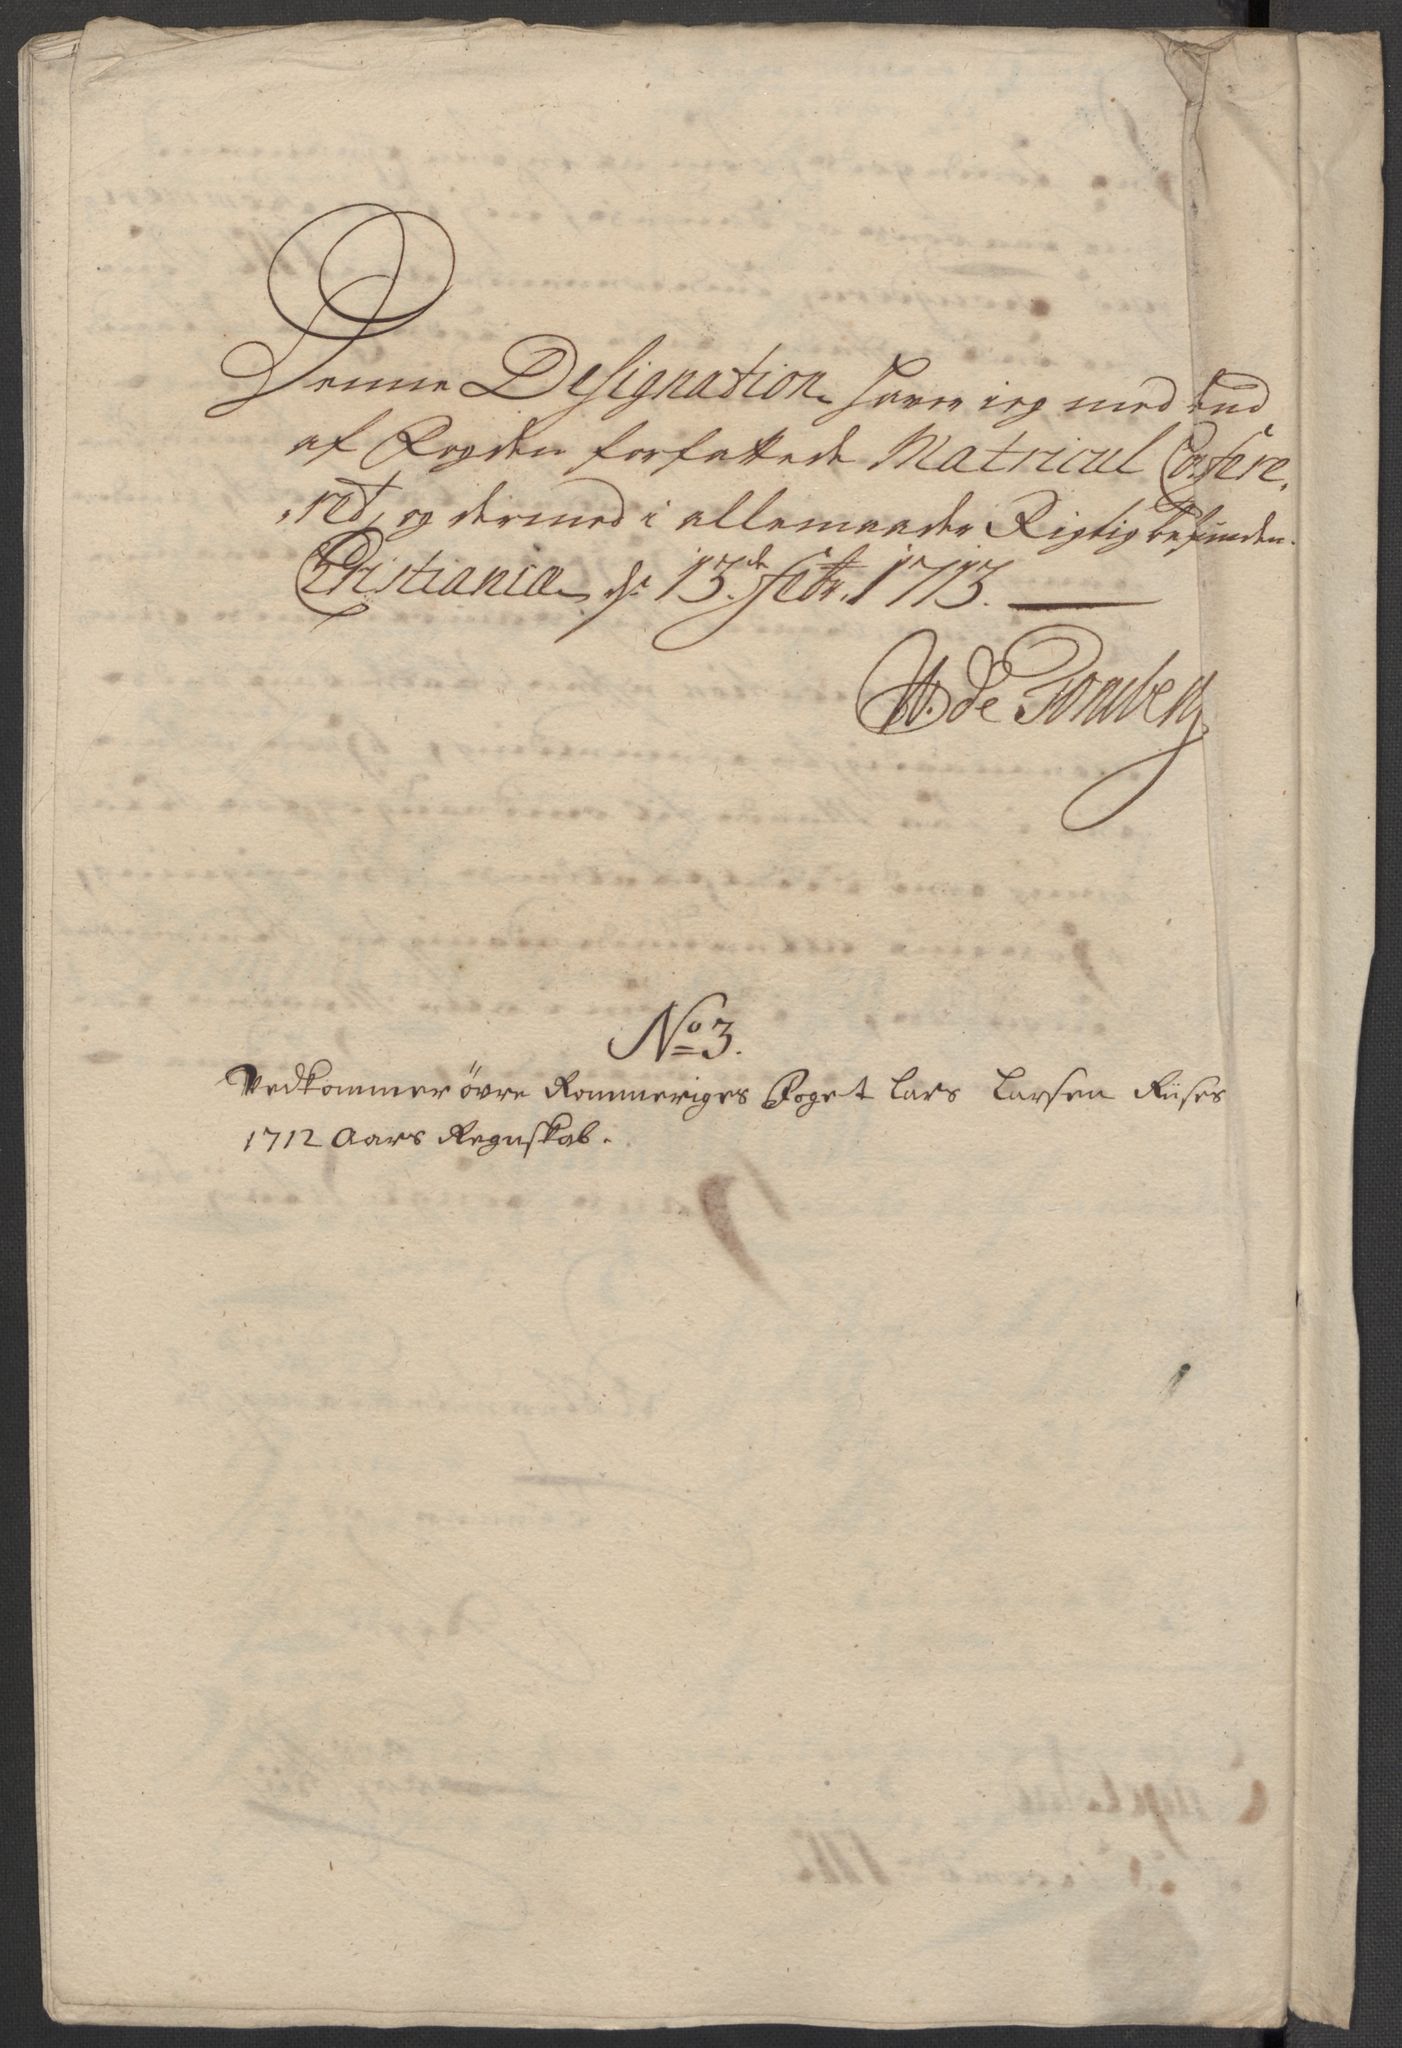 Denne Designation haver ieg med dend
af Fogden forfattede Matricul Confere,
,ret, og dermed i allemaader Rigtig befunden.
Christiania d: 13de Febr. 1713.
W. de Tonsberg
No 3.
Vedkommer övre Rommeriges Foget Lars Larsen Riises
1712 Aars Regnskab.